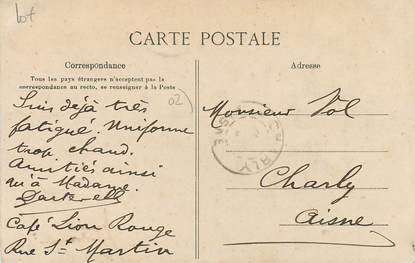 Lot
CARTE POSTALE
Correspondance
Tous les pays étrangers n'acceptent pas la
correspondance au recto, se renseigner à la Poste
02
Suis déjà très
fatigué. Uniforme
trop chaud.
Amitiés ainsi
qu'à Madame.
Café Lion Rouge
Rue St Martin
Adresse
Monsieur Vol
Charly
Aisne